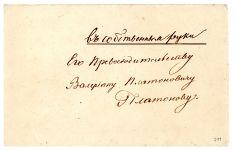 въ собственныя руки
Его Превосходительству
Валеріану Платоновичу
Платонову.